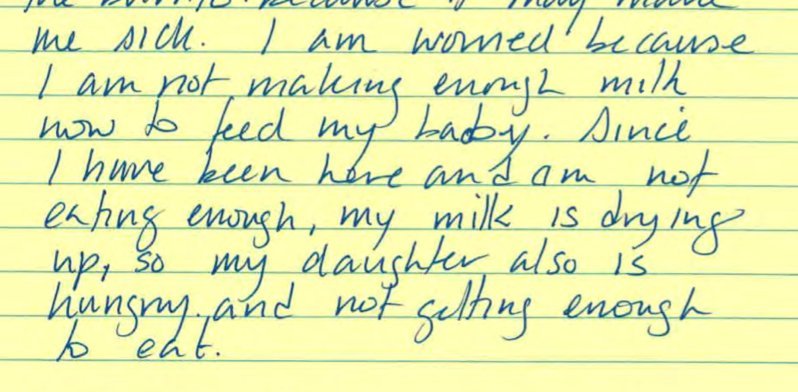 the burrito because it may make
me sick. I am worried because
I am not making enough milk
now to feed my baby. Since
I have been here and am not
eating enough, my milk is drying
up, so my daughter also is
hungry. and not getting enough
to eat.